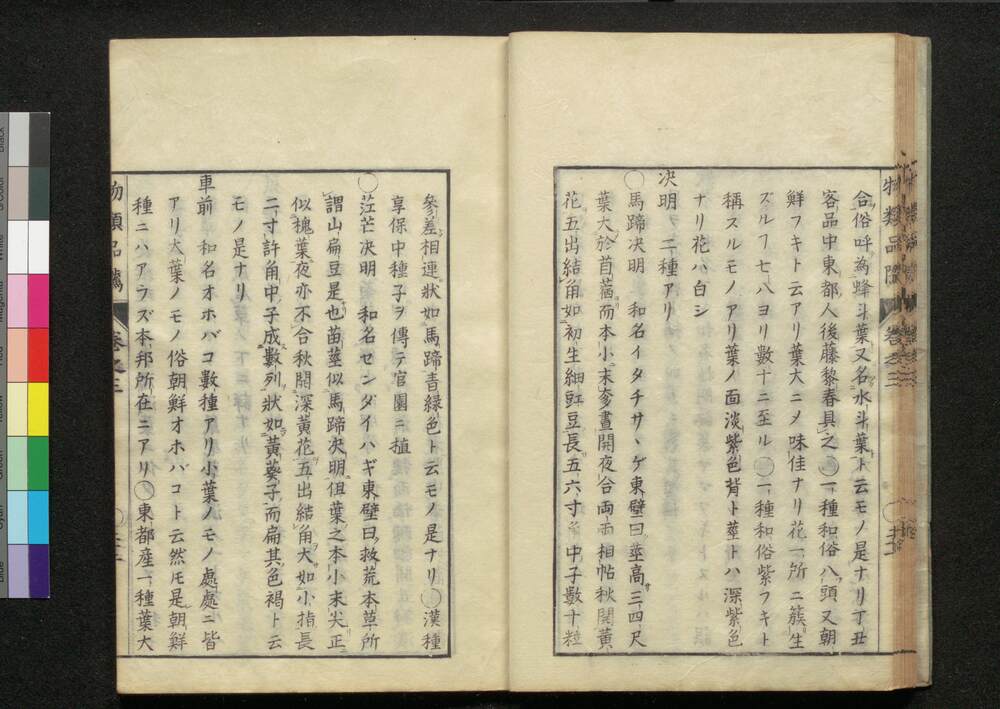 合俗呼為蜂斗葉又名水斗葉ト云モノ是ナリ丁丑
客品中東都人後藤黎春具之○一種和俗八頭又朝
鮮フキト云アリ葉大ニメ味佳ナリ花一所ニ簇生
ズルヿ七八ヨリ數十ニ至ル○一種和俗紫フキト
稱スルモノアリ葉ノ面淡紫色背ト莖トハ深紫色
ナリ花ハ白シ
决明 二種アリ
○馬蹄决明 和名イタチサヽゲ東壁曰莖高三四尺
葉大於苜蓿而本小末奓晝開夜合兩兩相帖秋開黃
花五出結角如初生細豇豆長五六寸角中子數十粒
參差相連狀如馬蹄青緑色ト云モノ是ナリ○漢種
享保中種子ヲ傳テ官園ニ植
○茳芒决明 和名センダイハギ東壁曰救荒本草所
謂山扁豆是也苗莖似馬蹄决明但葉之本小末尖正
似槐葉夜亦不合秋開深黃花五出結角大如小指長
二寸許角中子成數列狀如黃葵子而扁其色褐ト云
モノ是ナリ
車前 和名オホバコ數種アリ小葉ノモノ處處ニ皆
アリ大葉ノモノ俗朝鮮オホバコト云然𪜈是朝鮮
種ニハアラズ本邦所在ニアリ○東都産一種葉大
物類品隲 卷之三